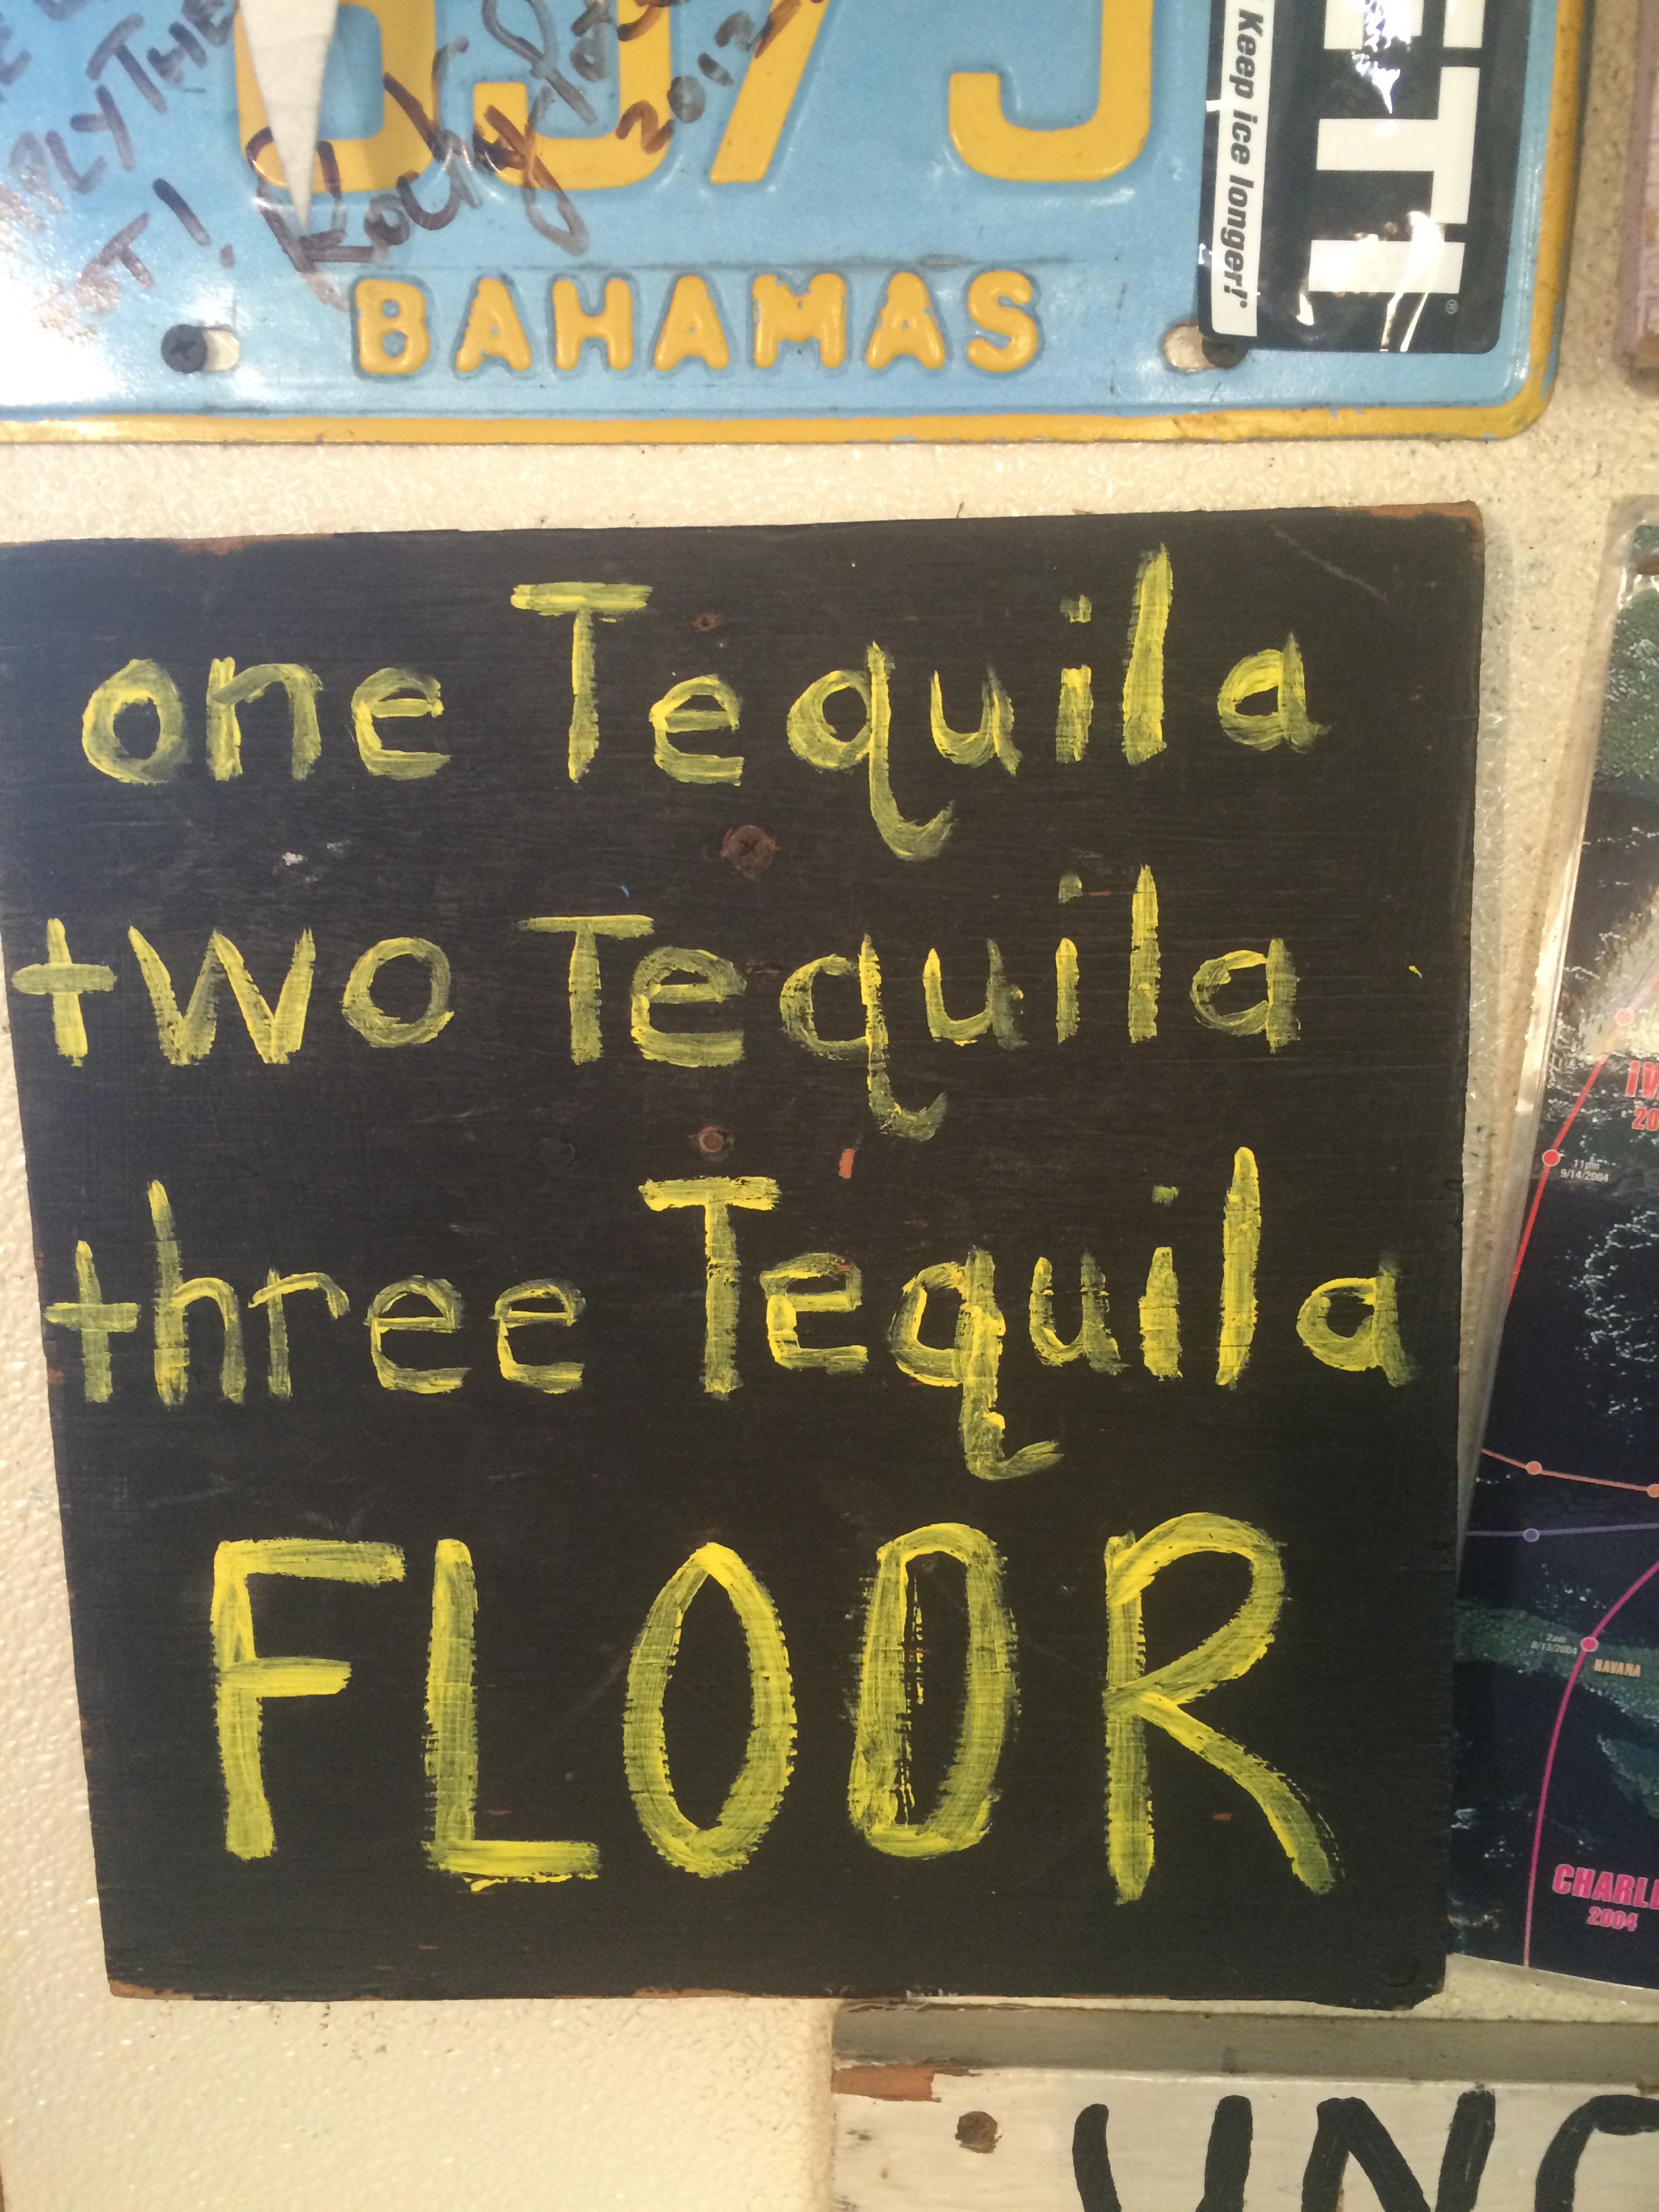 APLY THE
Rocky
2013
BAHAMAS
ETI
Keep ice longer!
one Tequila
two Tequila
three Tequila
FLOOR
11pm
9/14/2004
2am
8/13/2004
HAVANA
2004